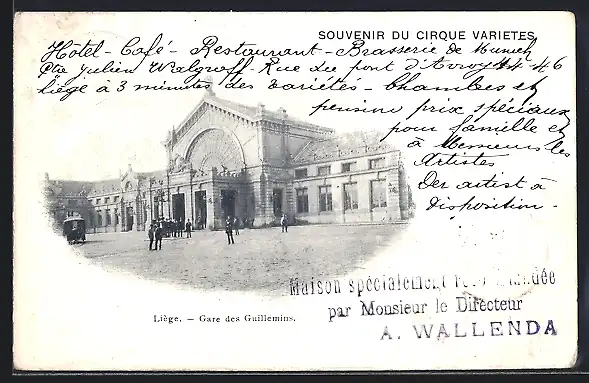 SOUVENIR DU CIRQUE VARIETES
Hôtel - Café - Restaurant - Brasserie de Munich
Julien Walgraff - Rue du pont d'Avroy 44-46
Liége à 3 minutes des variétés - Chambres et
pension prix spéciaux
pour famille et
à Messieurs les
Artistes
Der artist à
disposition -
Maison spécialement
par Monsieur le Directeur
A. WALLENDA
Liège. — Gare des Guillemins.